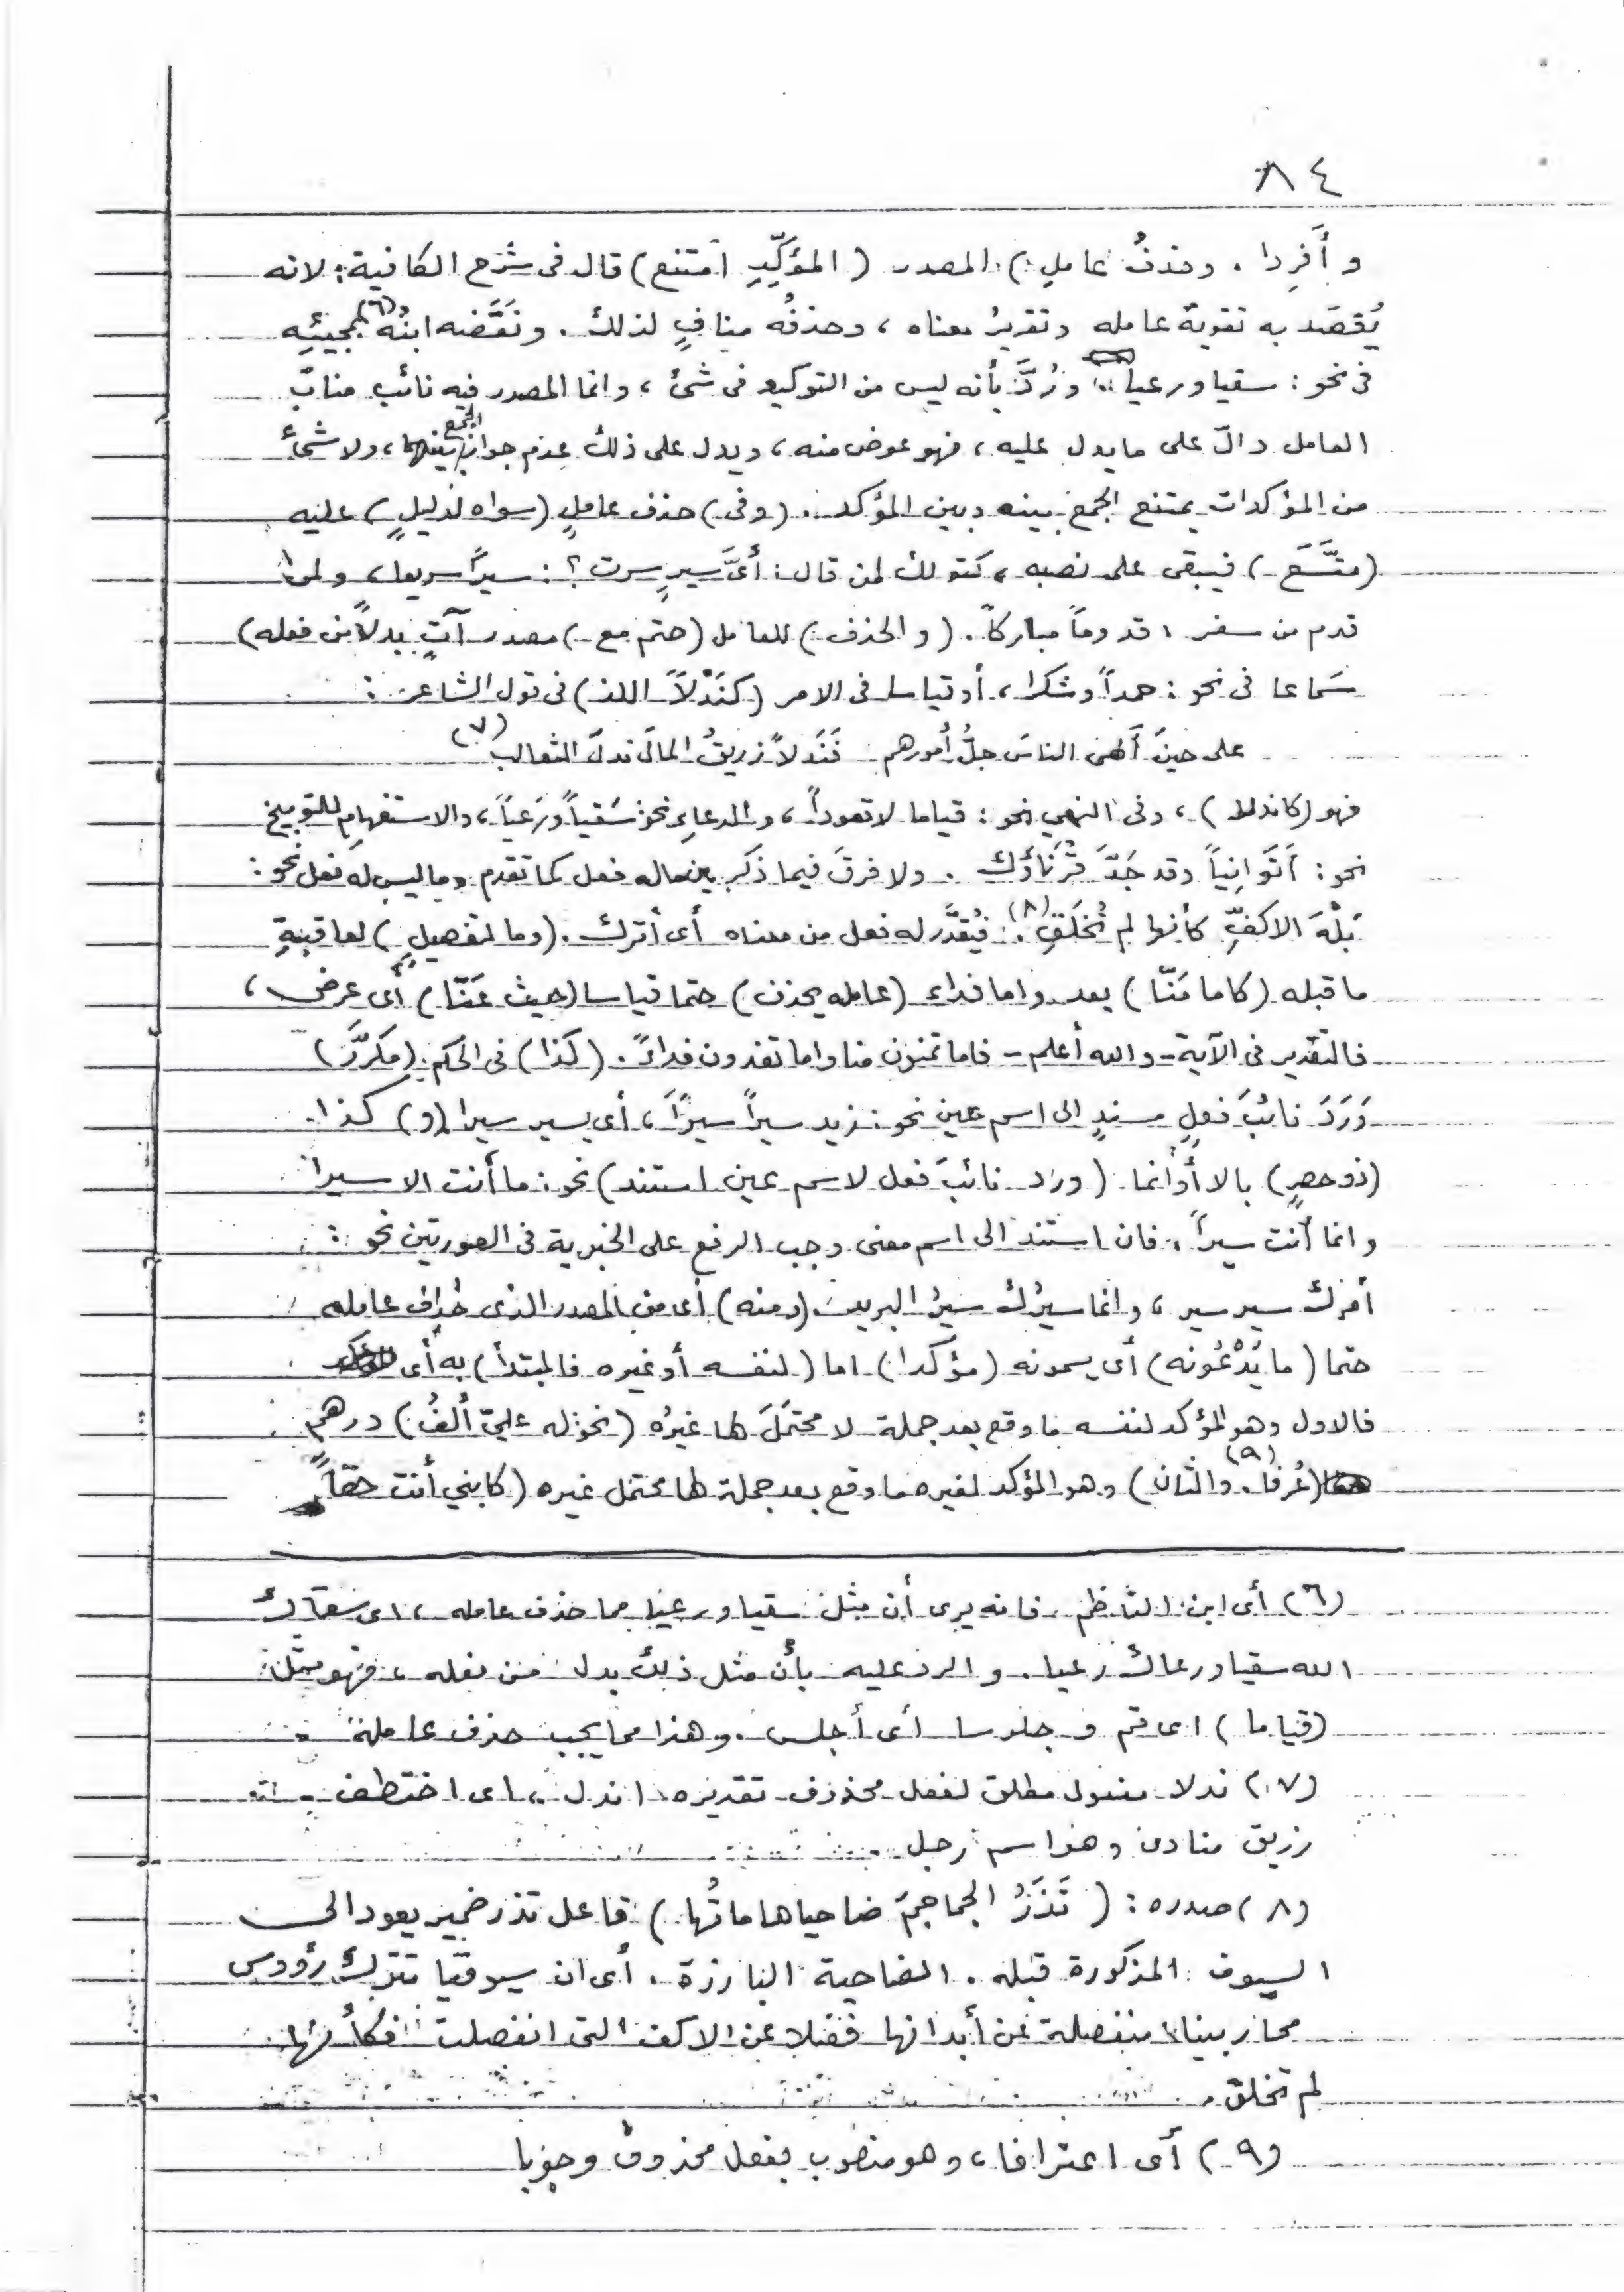 ٨٤
و أَفرِدا . وحذفُ عاملِ) المصدر (المؤكِّدِ امتنع) قال فى شرح الكافية: لانه
يُقصَد به تقويةُ عامله وتقريرُ معناه ، وحذفُه منافٍ لذلك . ونَقَّضه ابنُه (٦) بمجيئِه
فى نحو : سقيا ورعيا ،، ورُدَّ بأنه ليس من التوكيد فى شئ ، وانما المصدر فيه نائب مناب
العامل دالّ على مايدل عليه ، فهو عوض منه ، ويدل على ذلك عدم جواز الجمع بينهما ، ولا شئ
من المؤكدات يمتنع الجمع بينه وبين المؤكد . (وفى) حذف عاملِ (سواه لدليلٍ) عليه
(متَّسَع) فيبقى على نصبه ، كقولك لمن قال : أىَّ سيرٍ سرت ؟ : سيراً سريعا ، ولمن
قدم من سفر ، قدوماً مباركاً . (والحذف) للعامل (حتم مع) مصدر آتٍ بدلاً من فعله)
سَماعا فى نحو : حمداً وشكرا ، أوقياسا فى الامر (كنَدْلاً اللذ) فى قول الشاعر :
على حينَ أَلهى الناسَ جلُّ أُمورهم فَنَدلاً زريقُ المالَ ندلَ الثعالب (٧)
فهو (كاندلا) ، وفى النهي نحو : قياما لاقعوداً ، والدعاءِ نحو سَقياً ورَعياً ، والاستفهامِ للتوبيخ
نحو : أَتَوانِياً وقد جَدَّ قُرَناؤك . ولا فرقَ فيما ذكر بين ماله فعل كما تقدم وما ليس له فعل نحو :
بَلْهَ الاكفِّ كأنها لم تُخلَقِ (٨) . فيُقدَّر له فعل من معناه أى أترك . (وما لتفصيلٍ) لعاقبةِ
ما قبله (كاما مَنّا) بعد واما فداء (عامله يحذف) حتما قياسا (حيث عَنّا) أى عرض ،
فالتقدير فى الآية - والله أعلم - فاما تمنون منا واما تفدون فداءً . (كذا) فى الحكم (مكررَّ)
وَرَدَ نائبَ فعلٍ مسندٍ الى اسم عين نحو : زيد سيراً سيراً ، أى يسير سيرا (و) كذا
(ذو حصرٍ) بالا أوانما (ورد نائبَ فعل لاسم عين استند) نحو : ما أنت الا سيرا
وانما أنت سيراً ، فان استند الى اسم معنى وجب الرفع على الخبرية فى الصورتين نحو :
أمرك سير سير ، وانما سيرُك سيرُ البريد . (ومنه) أى من المصدر الذى حُذف عامله
حتما (ما يَدْعُونه) أى يسمونه (مؤكدا) اما (لنفسه أو غيره فالمبتدأ) به أى
فالاول وهو المؤكد لنفسه ما وقع بعد جملة لا محتمَلَ لها غيرُه (نحو له عليّ ألفُ) درهم
(عُرفا (٩) . والثان) وهو المؤكد لغيره ما وقع بعد جملة لها محتمل غيره (كابني أنت حقاً
(٦) أى ابن الناظم فانه يرى أن مثل سقيا ورعيا مما حذف عامله ، اى سقاك
الله سقيا ورعاك رعيا . والرد عليه بأن مثل ذلك بدل من فعله ، فهو مثل
(قياما) اى قم و جلوسا أى أجلس . وهذا مما يجب حذف عامله
(٧) ندلا مفعول مطلق لفعل محذوف تقديره اندل ، اى اختطف
زريق منادى وهو اسم رجل
(٨) صدره : (تَذَرُ الجماجمَ ضاحياً هاماتُها) فاعل تذر ضمير يعود الى
السيوف المذكورة قبله . الضاحية البارزة . أى ان سيوفنا تترك رؤوس
محاربينا منفصلة عن أبدانها فضلا عن الاكف التى انفصلت فكأنها
لم تخلق .
(٩) أى اعترافا ، وهو منصوب بفعل محذوف وجوبا